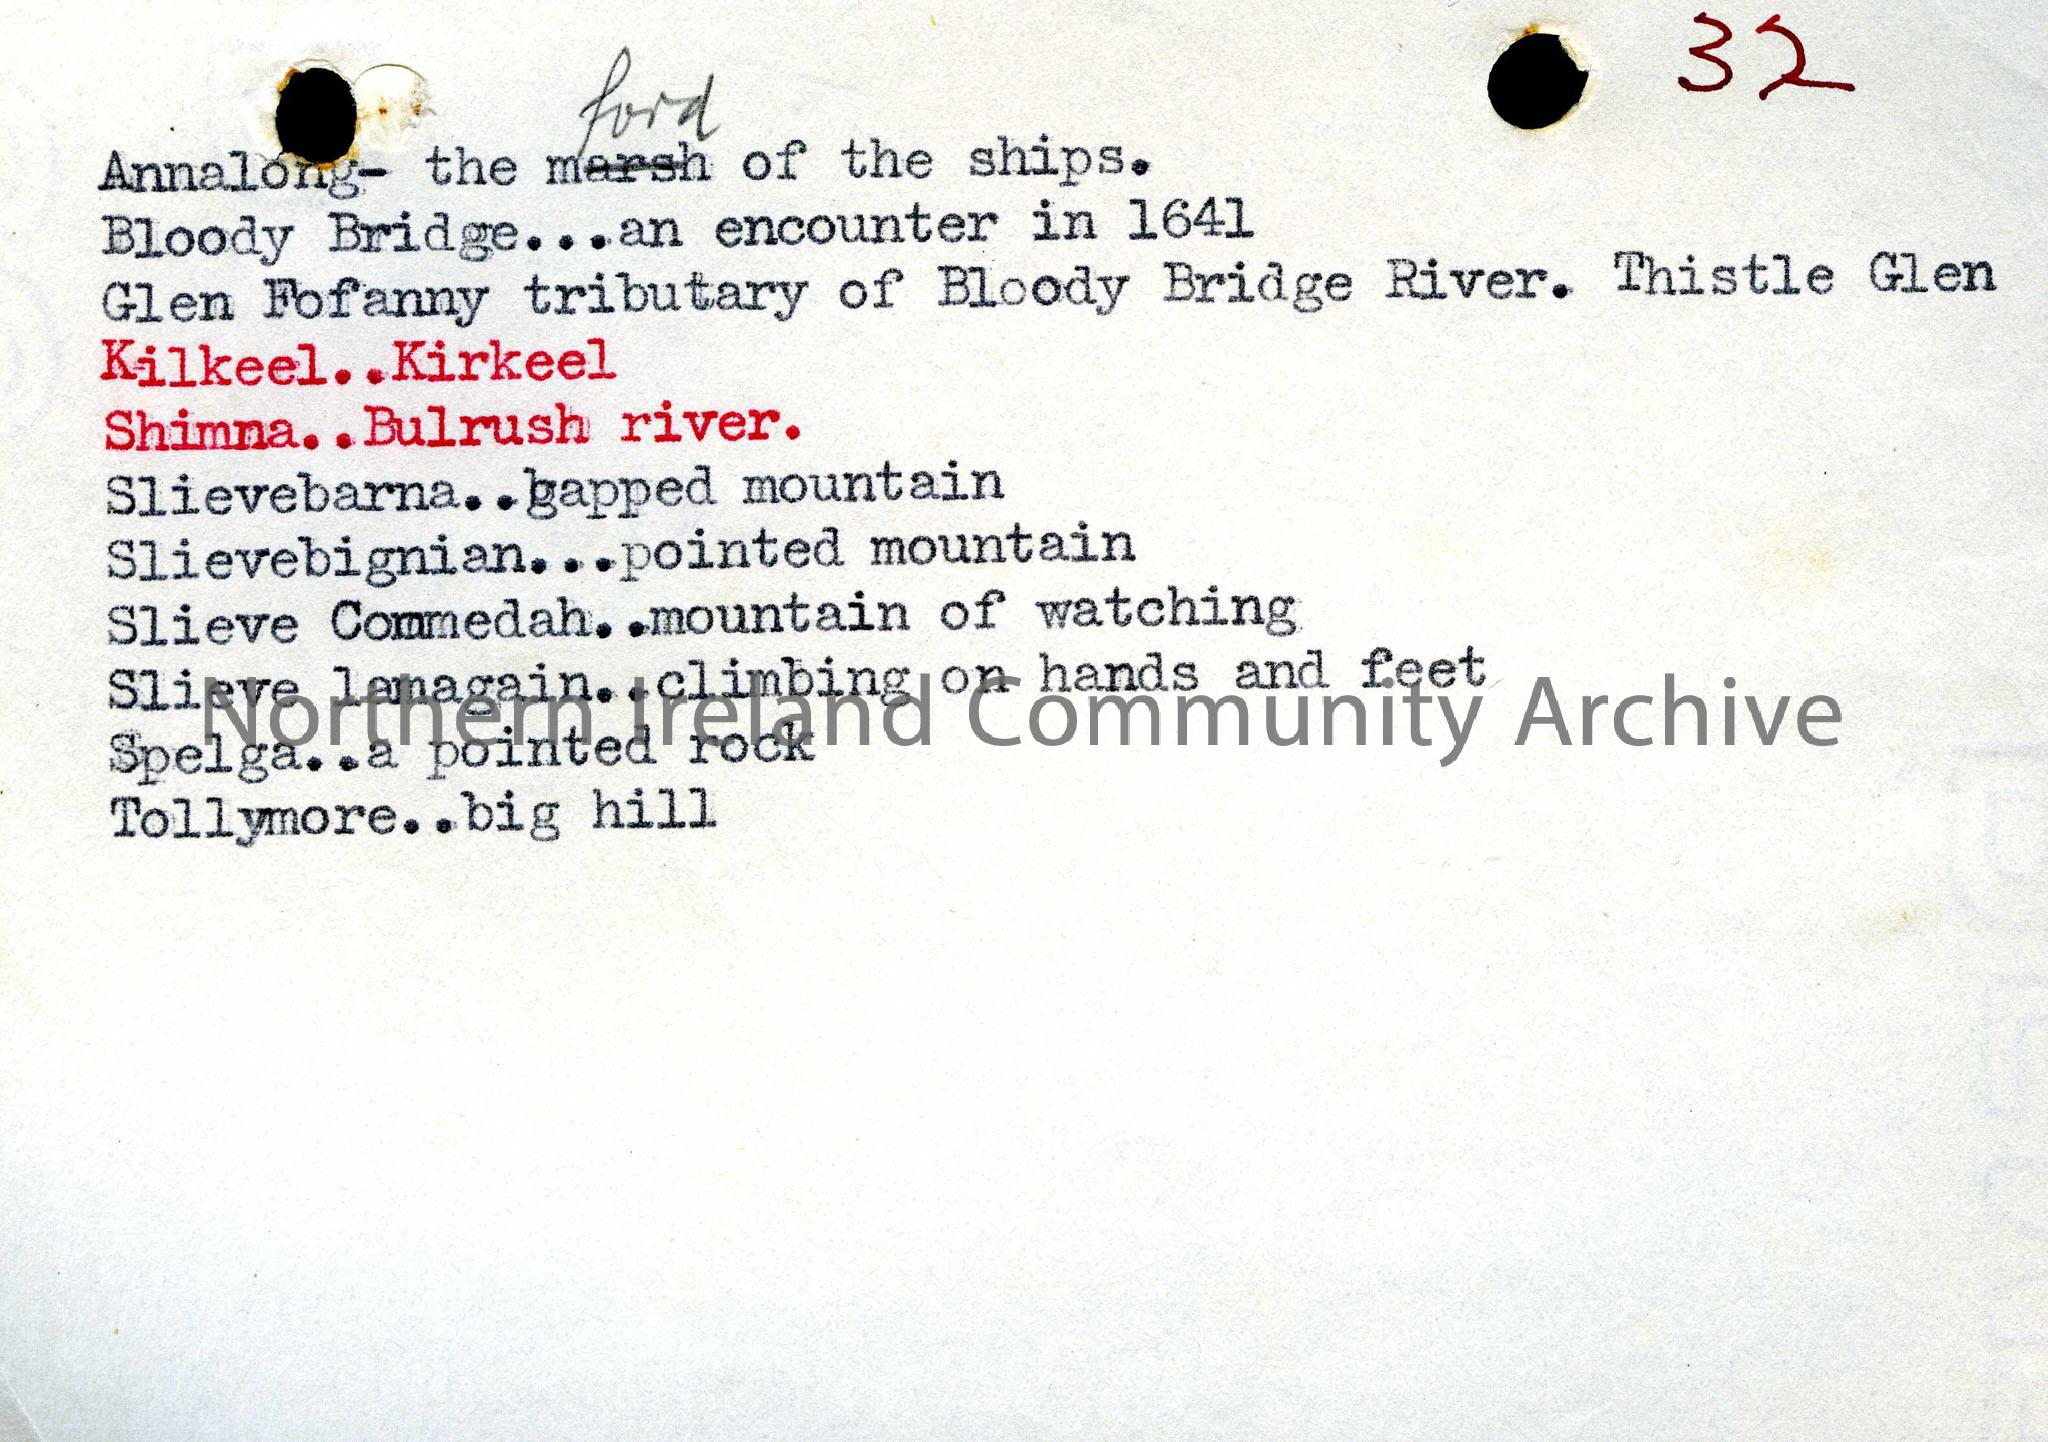 32
ford
Annalong- the marsh of the ships.
Bloody Bridge...an encounter in 1641
Glen Fofanny tributary of Bloody Bridge River. Thistle Glen
Kilkeel..Kirkeel
Shimna..Bulrush river.
Slievebarna..gapped mountain
Slievebignian...pointed mountain
Slieve Commedah..mountain of watching
Slieve lamagain..climbing on hands and feet
Northern Ireland Community Archive
Spelga..a pointed rock
Tollymore..big hill